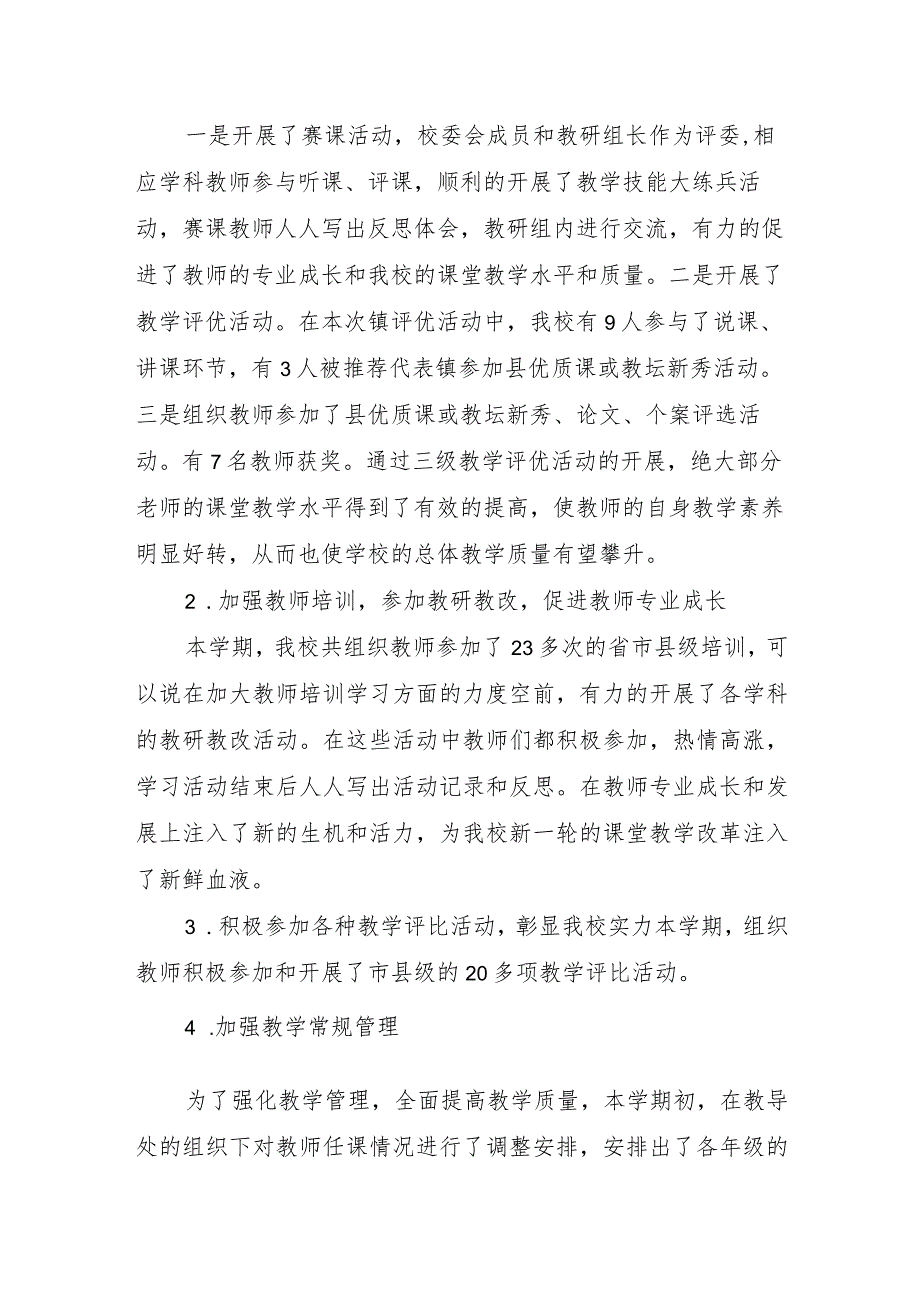 一是开展了赛课活动，校委会成员和教研组长作为评委,相
应学科教师参与听课、评课，顺利的开展了教学技能大练兵活
动，赛课教师人人写出反思体会，教研组内进行交流，有力的促
进了教师的专业成长和我校的课堂教学水平和质量。二是开展了
教学评优活动。在本次镇评优活动中，我校有 9 人参与了说课、
讲课环节，有 3 人被推荐代表镇参加县优质课或教坛新秀活动。
三是组织教师参加了县优质课或教坛新秀、论文、个案评选活
动。有 7 名教师获奖。通过三级教学评优活动的开展，绝大部分
老师的课堂教学水平得到了有效的提高，使教师的自身教学素养
明显好转，从而也使学校的总体教学质量有望攀升。
2 .加强教师培训，参加教研教改，促进教师专业成长
本学期，我校共组织教师参加了 23 多次的省市县级培训，可
以说在加大教师培训学习方面的力度空前，有力的开展了各学科
的教研教改活动。在这些活动中教师们都积极参加，热情高涨，
学习活动结束后人人写出活动记录和反思。在教师专业成长和发
展上注入了新的生机和活力，为我校新一轮的课堂教学改革注入
了新鲜血液。
3 .积极参加各种教学评比活动，彰显我校实力本学期，组织
教师积极参加和开展了市县级的 20 多项教学评比活动。
4 .加强教学常规管理
为了强化教学管理，全面提高教学质量，本学期初，在教导
处的组织下对教师任课情况进行了调整安排，安排出了各年级的